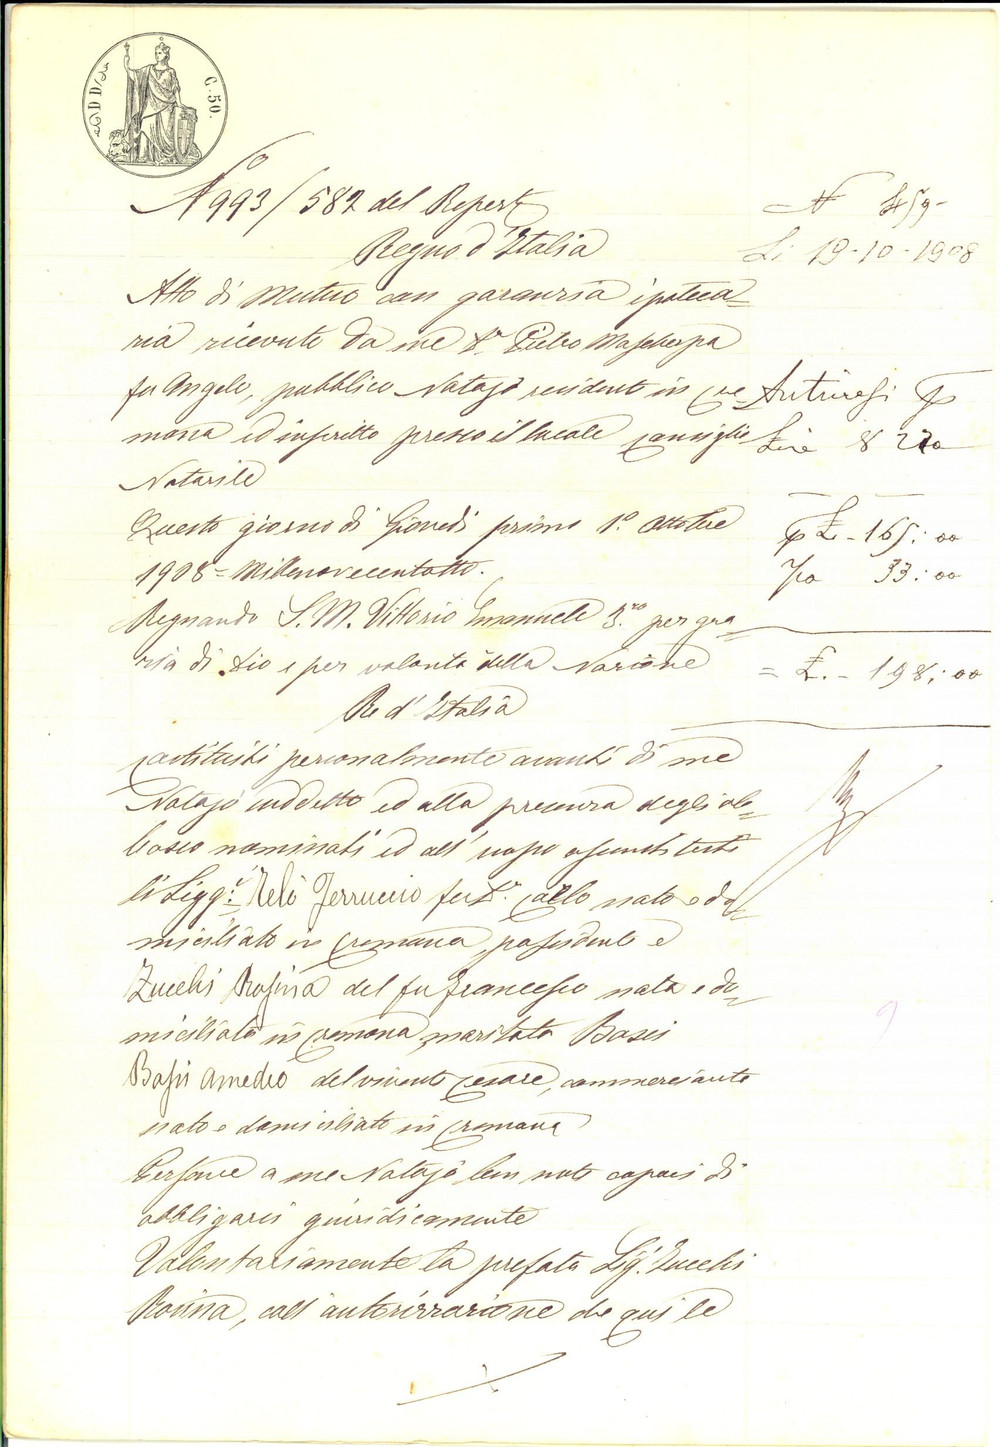 C. 50.
N° 993/582 del Repert°
Regno d'Italia
Atto di Mutuo con garanzia ipoteca=
ria ricevuto da me Dr. Pietro Mascherpa
fu Angelo, pubblico Notajo residente in Cre=
mona ed inscritto presso il locale Consiglio
Notarile
Questo giorno di Giovedì primo 1.° Ottobre
1908 = Millenovecentotto.
Regnando S. M. Vittorio Emanuele 3.zo per gra=
zia di Dio e per volontà della Nazione
Re d'Italia
Costituiti personalmente avanti di me
Notajo suddetto ed alla presenza degli ab=
basso nominati ed all'uopo assunti testi
li Sigg.ri Telò Ferruccio fu Dr. Carlo nato e do=
miciliato in Cremona, possidente e
Zucchi Rosina del fu Francesco nata e do=
miciliata in Cremona, maritata Bassi
Bassi Amedeo del vivente Cesare, commerciante
nato e domiciliato in Cremona
Persone a me Notajo ben note capaci di
obbligarsi giuridicamente
Volontariamente la prefata Sig.a Zucchi
Rosina, coll'autorizzazione che qui le
N 459-
Li 19-10-1908
Lire 8270
£ - 165:00
33:00
= £. - 198:00